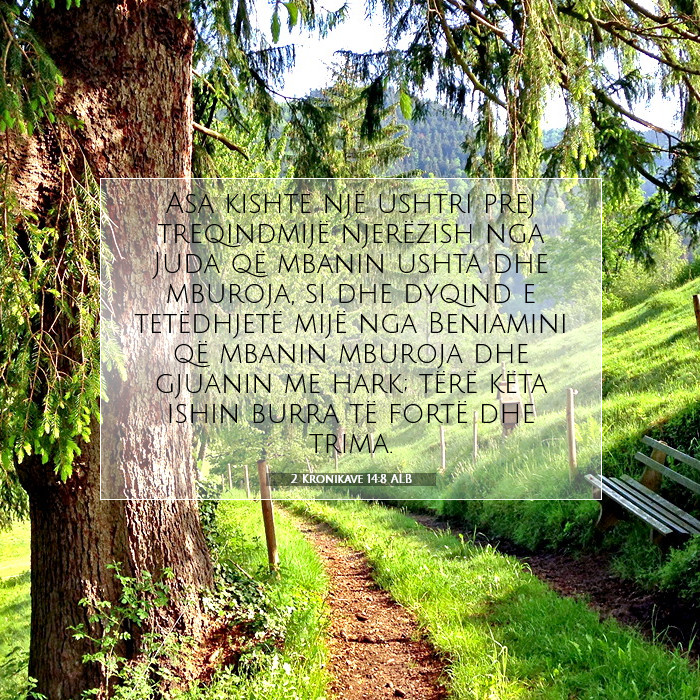 Asa kishte një ushtri prej
treqindmijë njerëzish nga
Juda që mbanin ushta dhe
mburoja, si dhe dyqind e
tetëdhjetë mijë nga Beniamini
që mbanin mburoja dhe
gjuanin me hark; tërë këta
ishin burra të fortë dhe
trima.
2 Kronikave 14:8 ALB